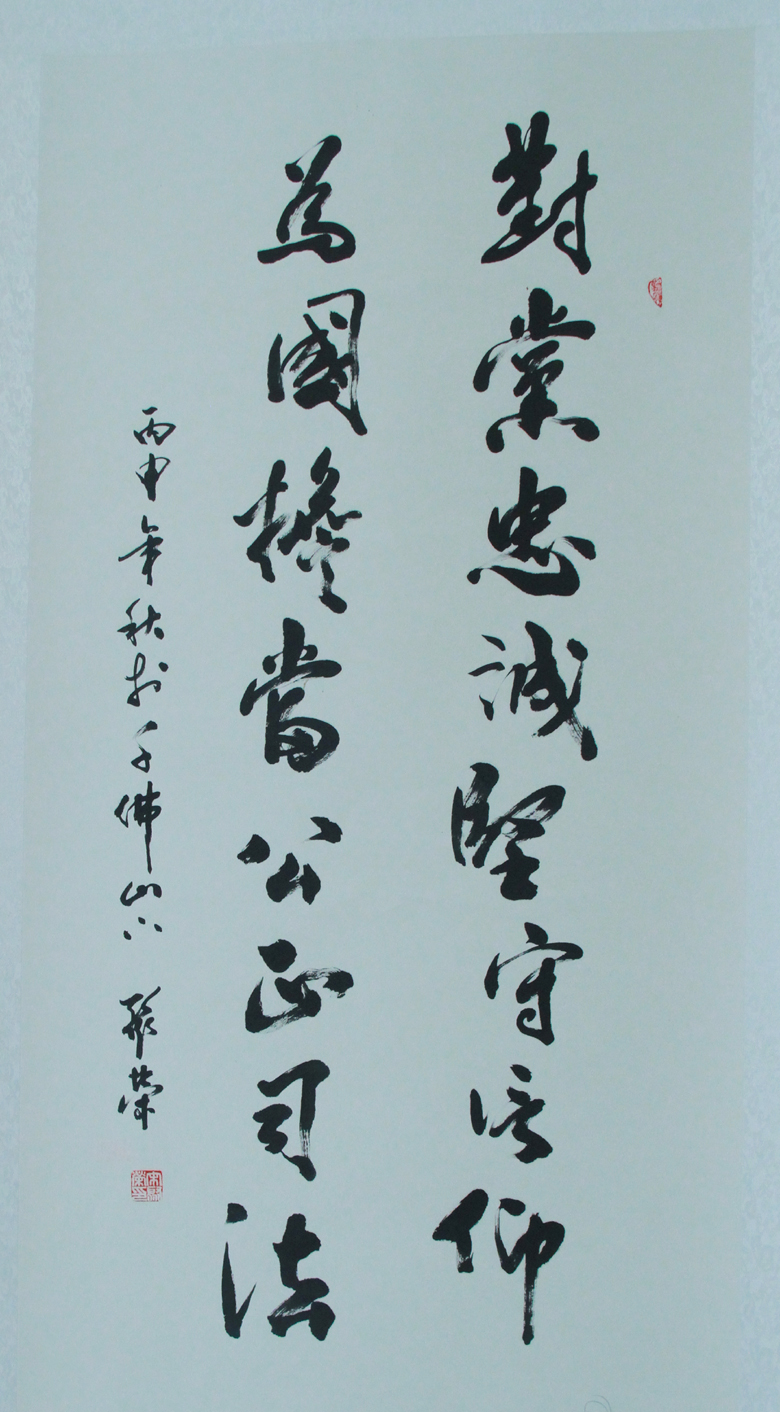 對黨忠誠堅守信仰
為國擔當公正司法
丙申年秋於千佛山下